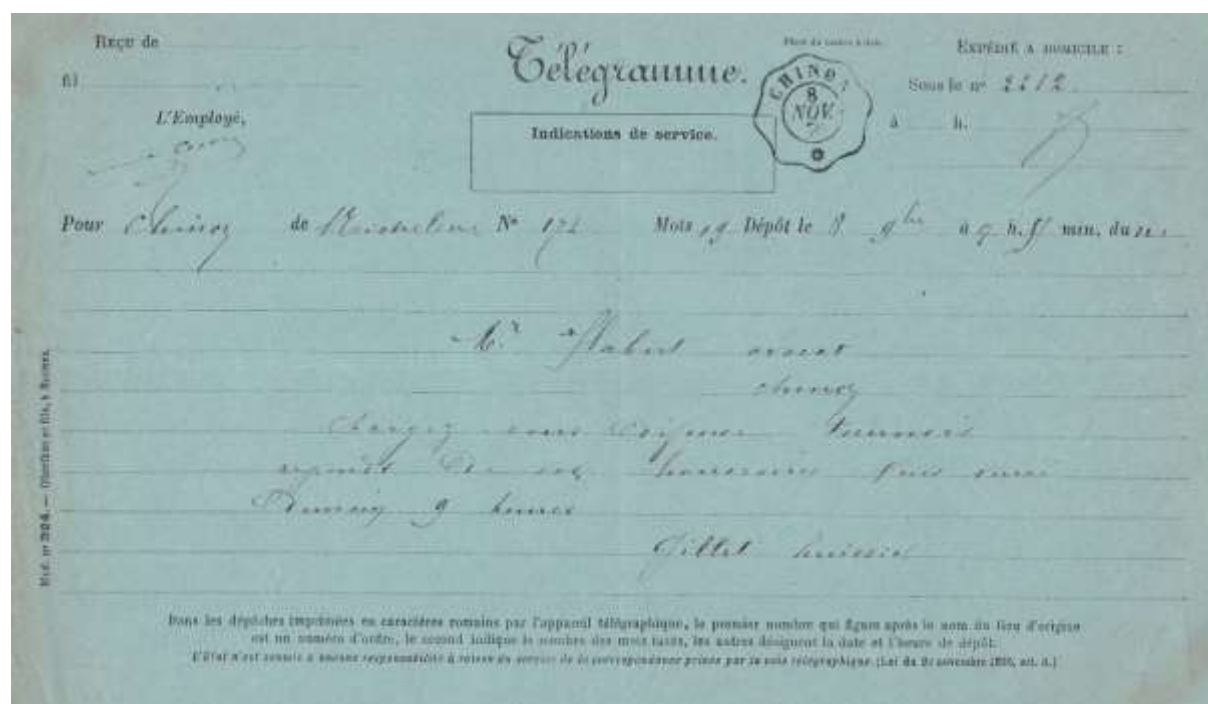 Reçu de
fil
L'Employé,
Télégramme.
Indications de service.
CHINON
8
NOV.
EXPÉDIÉ A DOMICILE :
Sous le nº 2212
à h.
Pour Chinon de Richelieu Nº 172 Mots 19 Dépôt le 8 9bre à 9 h. 51 min. du
Mr
Chinon
Chargez vous
répondt de vos honoraires suis
9 heures
Gillet huissier
Dans les dépêches imprimées en caractères romains par l'appareil télégraphique, le premier nombre qui figure après le nom du lieu d'origine
est un numéro d'ordre, le second indique le nombre des mots taxés, les autres désignent la date et l'heure de dépôt.
L'État n'est soumis à aucune responsabilité à raison du service de la correspondance privée par la voie télégraphique. (Loi du 29 novembre 1850, art. 6.)
Mod. nº 324. — Oberthur et fils, à Rennes.